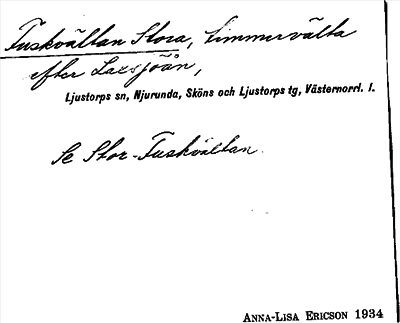 Tuskvältan Stora, timmervälta
efter Laxsjöån,
Ljustorps sn, Njurunda, Sköns och Ljustorps tg, Västernorrl. l.
Se Stor-Tuskvältan.
ANNA-LISA ERICSON 1934